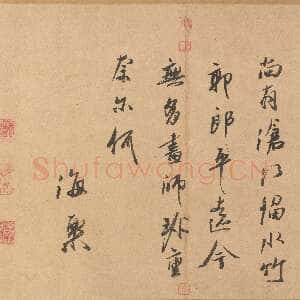 尚有滄江水竹
郭郎平遠今
無多畫師珍重
奈尔何
海
Shufawang.CN